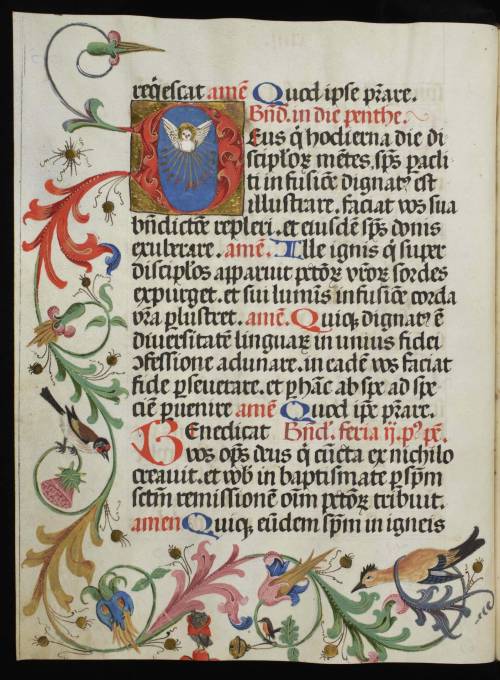 req̄escat amē Quod ipse p̄rare.
Bn̄d. in die penthe.
Deus q̄ hodierna die di
sciploꝝ mētes. sp̄s pacli
ti infusiōe dignatꝰ est
illustrare. faciat vos sua
bn̄dictōe repleri. et eiusdē sp̄s donis
exuberare. amē. Ille ignis q̄ super
discip̄los apparuit pctōꝝ vr̄oꝝ sordes
expurget. et sui lumīs infusiōe corda
vr̄a ꝑlustret. amē. Quiqꝫ dignatꝰ ē
diuersitatē linguaꝝ in unius fidei
ꝯfessione adunare. in eadē vos faciat
fide ꝑseuerare. et ꝑ hāc ab spe ad spe
ciē ꝑuenire amē Quod ip̄e p̄rare.
Benedicat Bn̄d. feria ij. pꝰ pē.
vos op̄s deus q̄ cūcta ex nichilo
creauit. et vob̄ in baptismate ꝑ sp̄m
sctm̄ remissionē oīm pctōꝝ tribuit.
amen Quiqꝫ eūdem sp̄m in igneis